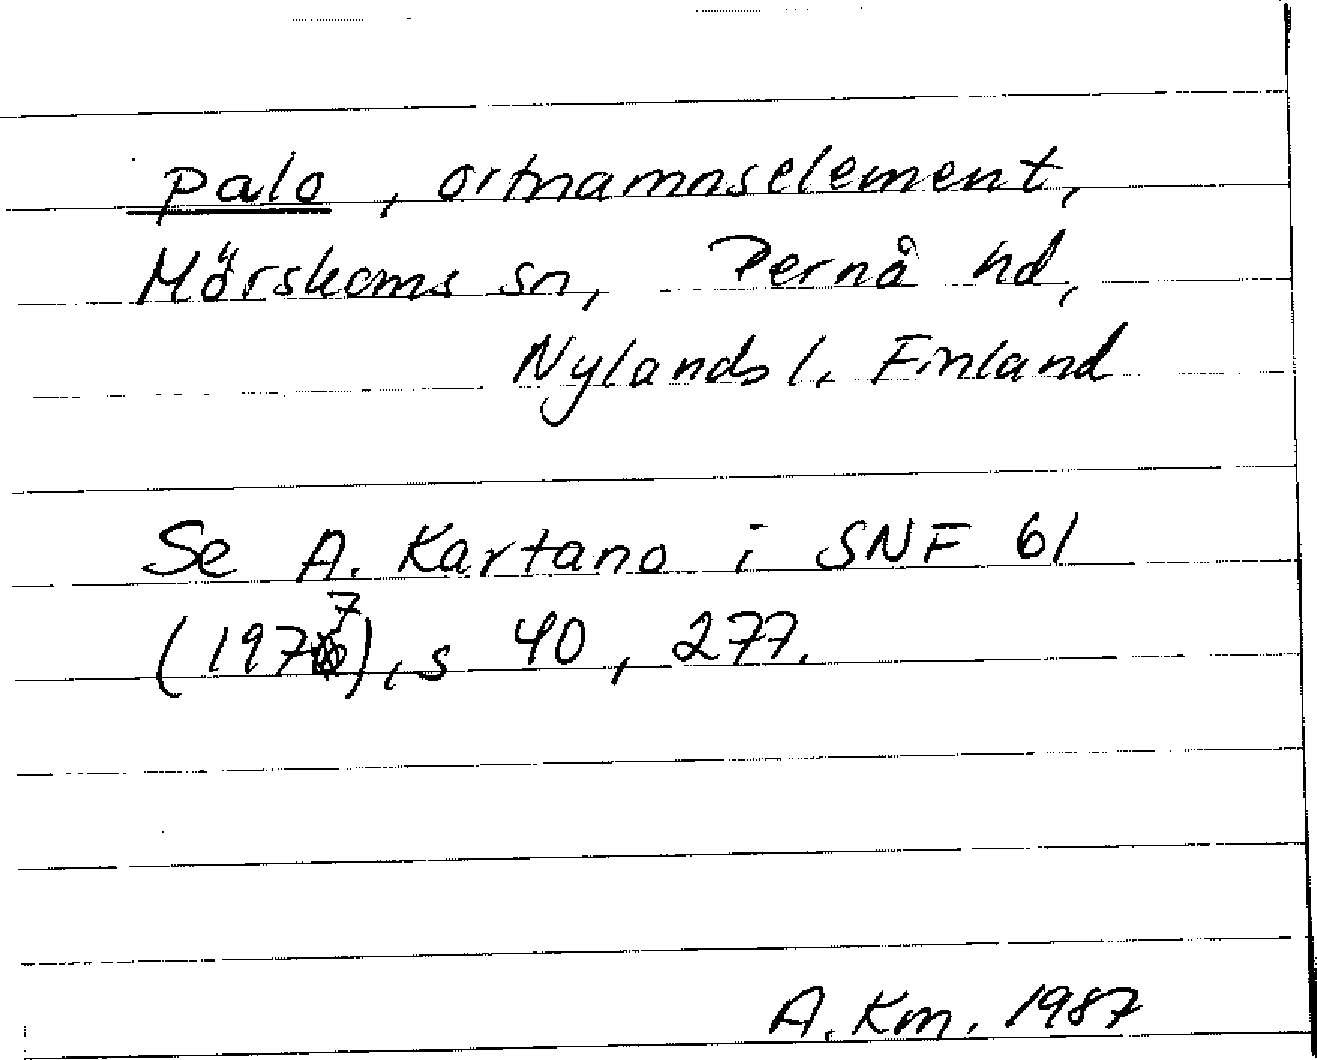 palo, ortnamnselement,
Mörskoms sn, Pernå hd,
Nylands l. Finland
Se A. Kartano i SNF 61
(1977), s 40, 277.
A. Km. 1987